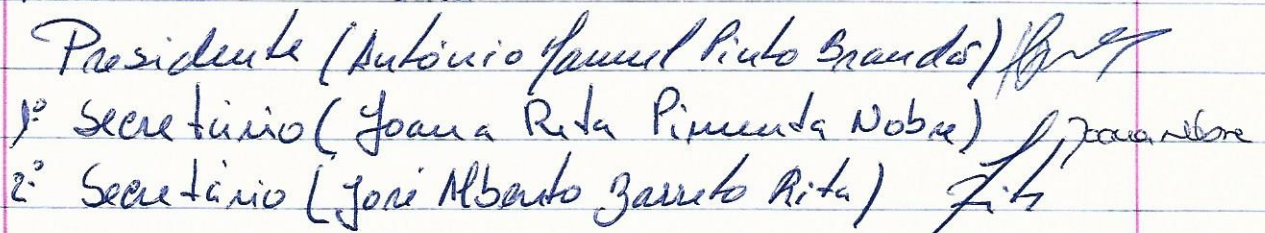 Presidente (António Manuel Pinto Brandão)
1º Secretário (Joana Rita Pimenta Nobre) Joana Nobre
2º Secretário (José Alberto Barreto Rita)